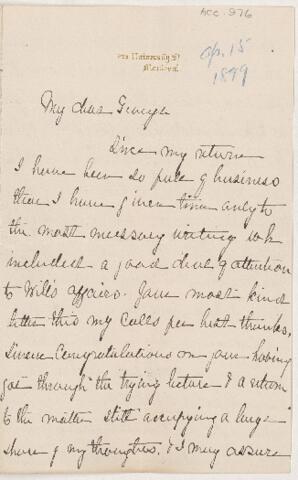 Acc. 276
University St
Montreal
Ap. 15
1899
My dear George
Since my return
I have been so full of business
that I have given time only to
the most necessary writing wh
included a good deal of attention
to Wills affairs. Your most kind
letter this my calls for best thanks,
Sincere Congratulations on your having
got through the trying lecture & a return
to the matter still occupying a large
share of my thoughts. & I may assure